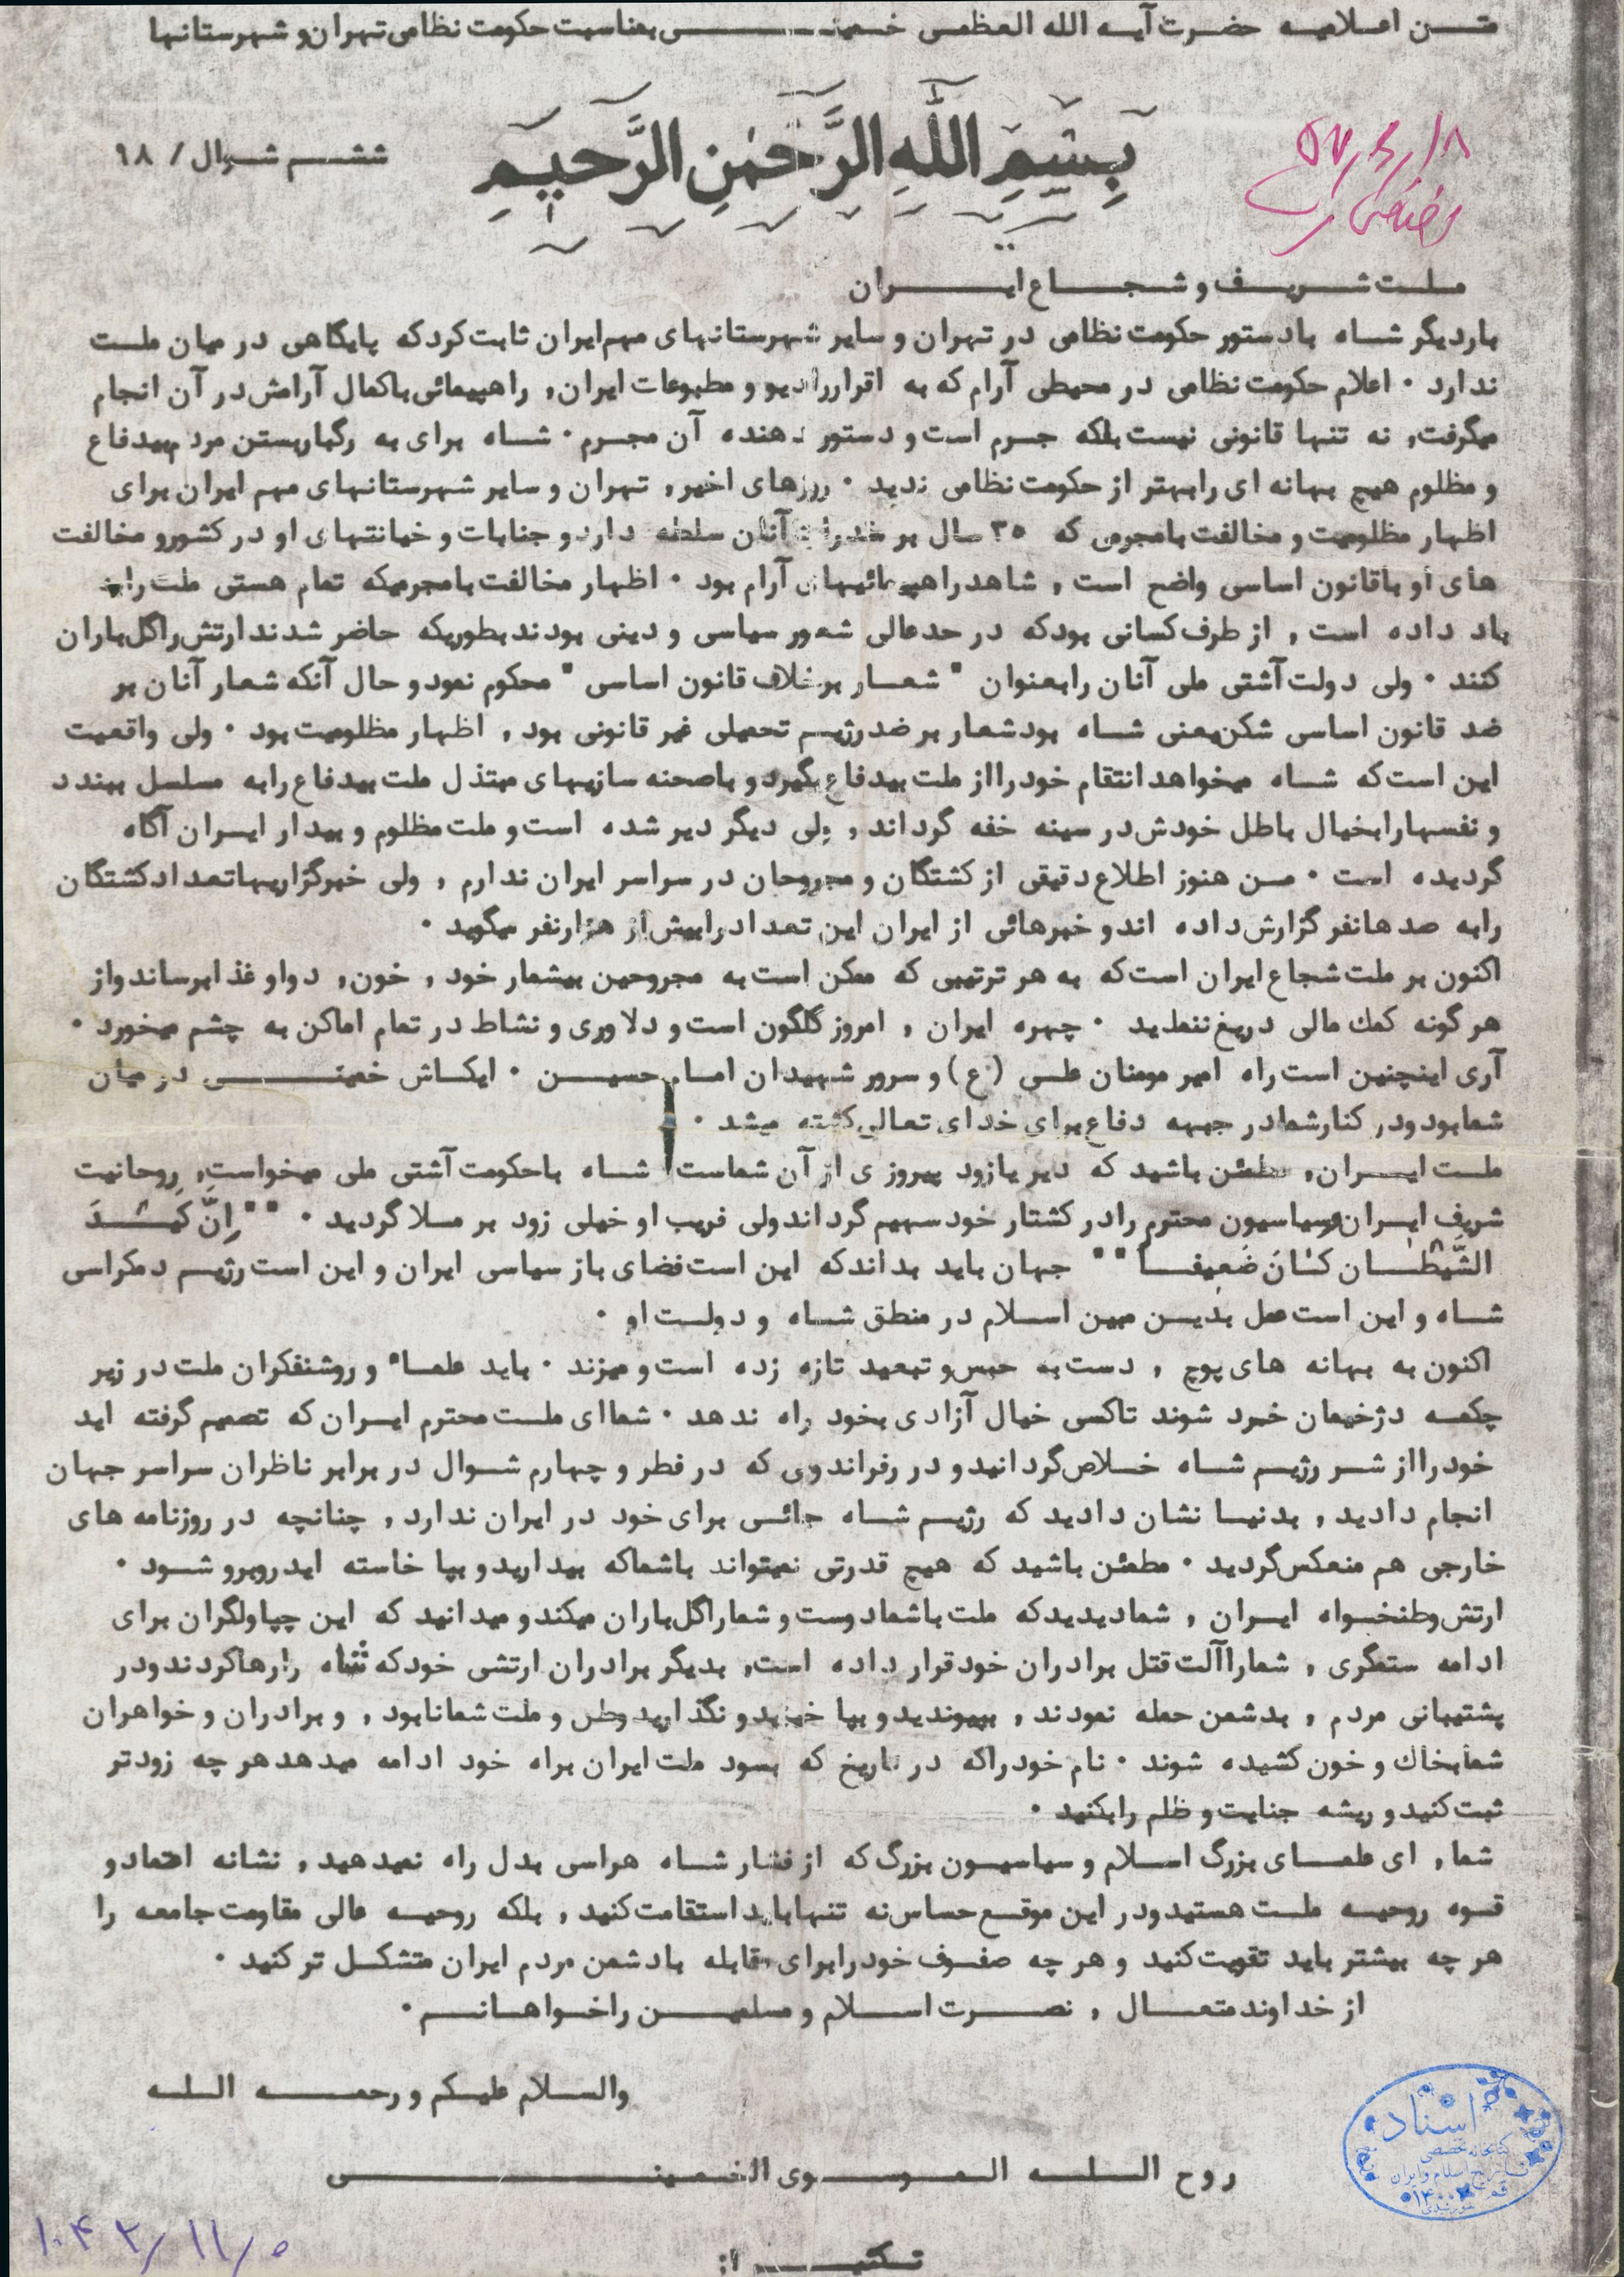 متن اعلامیه حضرت آیه الله العظمی خمینی بمناسبت حکومت نظامی تهران و شهرستانها
بِسْمِ اللَّهِ الرَّحْمٰنِ الرَّحيمِ
ششم شوال / ۹۸
ملت شریف و شجاع ایران
باردیگر شاه بادستور حکومت نظامی در تهران و سایر شهرستانهای مهم ایران ثابت کرد که پایگاهی در میان ملت
ندارد ۰ اعلام حکومت نظامی در محیطی آرام که به اقرار رادیو و مطبوعات ایران, راهپیمائی باکمال آرامش در آن انجام
میگرفت, نه تنها قانونی نیست بلکه جرم است و دستور دهنده آن مجرم ۰ شاه برای به رگبار بستن مردم بیدفاع
و مظلوم هیچ بهانه ای رابهتر از حکومت نظامی ندید ۰ روزهای اخیر, تهران و سایر شهرستانهای مهم ایران برای
اظهار مظلومیت و مخالفت بامجرمی که ۳۵ سال بر مقدرات آنان سلطه دارد و جنایات و خیانتهای او در کشور و مخالفت
های او باقانون اساسی واضح است , شاهد راهپیمائیهای آرام بود ۰ اظهار مخالفت بامجرمیکه تمام هستی ملت رابه
باد داده است , از طرف کسانی بود که در حد عالی شعور سیاسی و دینی بودند بطوریکه حاضر شدند ارتش راگل باران
کنند ۰ ولی دولت آشتی ملی آنان رابعنوان " شعار برخلاف قانون اساسی " محکوم نمود و حال آنکه شعار آنان بر
ضد قانون اساسی شکن یعنی شاه بود شعار بر ضد رژیم تحمیلی غیر قانونی بود , اظهار مظلومیت بود ۰ ولی واقعیت
این است که شاه میخواهد انتقام خود رااز ملت بیدفاع بگیرد و باصحنه سازیهای مبتذل ملت بیدفاع رابه مسلسل ببندد
و نفسهارابخیال باطل خودش در سینه خفه گرداند , ولی دیگر دیر شده است و ملت مظلوم و بیدار ایران آگاه
گردیده است ۰ من هنوز اطلاع دقیقی از کشتگان و مجروحان در سراسر ایران ندارم , ولی خبرگزاریهاتعداد کشتگان
رابه صدهانفر گزارش داده اند و خبرهائی از ایران این تعداد رابیش از هزارنفر میگوید ۰
اکنون بر ملت شجاع ایران است که به هر ترتیبی که ممکن است به مجروحین بیشمار خود , خون, دواو غذابرساند و از
هر گونه کمك مالی دریغ ننمایید ۰ چهره ایران , امروز گلگون است و دلاوری و نشاط در تمام اماکن به چشم میخورد ۰
آری اینچنین است راه امیر مومنان علی (ع) و سرور شهیدان امام حسین ۰ ایکاش خمینی در میان
شمابود و در کنارشمادر جبهه دفاع برای خدای تعالی کشته میشد ۰
ملت ایران, مطمئن باشید که دیر یازود پیروزی از آن شماست شاه باحکومت آشتی ملی میخواست, روحانیت
شریف ایران و سیاسیون محترم رادر کشتار خود سهیم گرداند ولی فریب او خیلی زود بر ملا گردید ۰ " " اِنَّ کَیْدَ
الشَّیْطانِ کٰانَ ضَعیفاً " " جهان باید بداند که این است فضای باز سیاسی ایران و این است رژیم دمکراسی
شاه و این است عمل بدین مبین اسلام در منطق شاه و دولت او ۰
اکنون به بهانه های پوچ , دست به حبس و تبعید تازه زده است و میزند ۰ باید علماء و روشنفکران ملت در زیر
چکمه دژخیمان خرد شوند تاکسی خیال آزادی بخود راه ندهد ۰ شماای ملت محترم ایران که تصمیم گرفته اید
خود رااز شر رژیم شاه خلاص گردانید و در رفراندومی که در فطر و چهارم شوال در برابر ناظران سراسر جهان
انجام دادید , بدنیا نشان دادید که رژیم شاه جائی برای خود در ایران ندارد , چنانچه در روزنامه های
خارجی هم منعکس گردید ۰ مطمئن باشید که هیچ قدرتی نمیتواند باشماکه بیدارید و بپا خاسته اید روبرو شود ۰
ارتش وطنخواه ایران , شمادیدید که ملت باشمادوست و شماراگل باران میکند و میدانید که این چپاولگران برای
ادامه ستمگری , شماراآلت قتل برادران خود قرار داده است, بدیگر برادران ارتشی خود که شاه را رهاکردند و در
پشتیبانی مردم , بدشمن حمله نمودند , بپیوندید و بپا خیزید و نگذارید وطن و ملت شمانابود , و برادران و خواهران
شمابخاك و خون کشیده شوند ۰ نام خود راکه در تاریخ که بسود ملت ایران براه خود ادامه میدهد هر چه زودتر
ثبت کنید و ریشه جنایت و ظلم رابکنید ۰
شما, ای علمای بزرگ اسلام و سیاسیون بزرگ که از فشار شاه هراسی بدل راه نمیدهید, نشانه اعتماد و
قوه روحیه ملت هستید و در این موقع حساس نه تنهاباید استقامت کنید , بلکه روحیه عالی مقاومت جامعه را
هر چه بیشتر باید تقویت کنید و هر چه صفوف خود رابرای مقابله بادشمن مردم ایران متشکل تر کنید ۰
از خداوند متعال , نصرت اسلام و مسلمین راخواهانم ۰
والسلام علیکم و رحمه الله
روح الله الموسوی الخمینی
اسناد
کتابخانه تخصصی
تاریخ اسلام و ایران
تکثیر از: